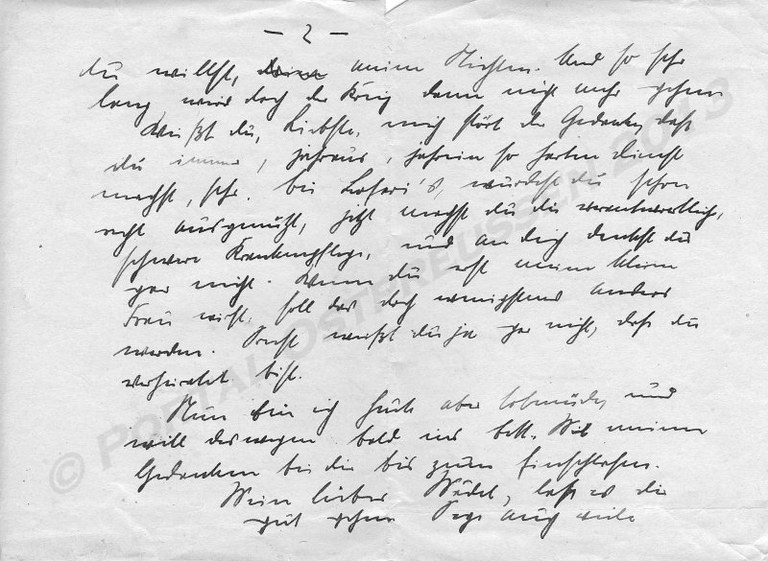 - 2 -
du willst, meine Nichten. Und so sehr
lang wird doch der Krieg dann nicht mehr gehen
Weißt du, Liebste, mich stört der Gedanke, daß
du immer, jahraus, jahrein so harten Dienst
machst, bei, würdest du schon
recht ausgenützt, jetzt machst du die verantwortliche,
schwere Krankenpflege, und an dich denkst du
gar nicht. Wenn du erst meine kleine
Frau wirst, soll das doch wenigstens anders
werden. Sonst weißt du ja gar nicht, daß du
verheiratet bist.
Nun bin ich heute aber todmüde, und
will deswegen bald ins Bett. Mit meinen
Gedanken bei dir bis zum Einschlafen.
Mein liebes Mädel, laß es dir
gut gehen. Sage auch viele
© PORTAL-OSTPREUSSEN 2013